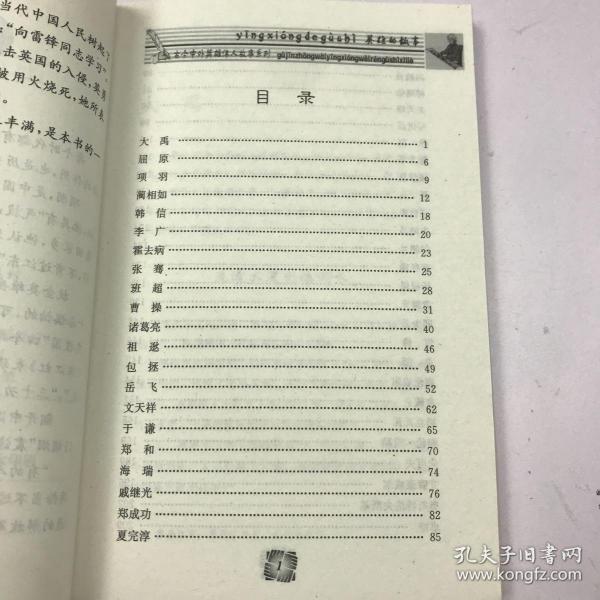 当代中国人民树起了
“向雷锋同志学习”。
击英国的入侵，英勇
被用火烧死，她所表
丰满，是本书的一
yīngxióngdegùshì 英雄的故事
古今中外英雄伟人故事系列 gǔjīnzhōngwàiyīngxióngwěiréngùshìxìliè
目 录
大 禹 1
屈 原 6
项 羽 9
蔺相如 12
韩 信 18
李 广 20
霍去病 23
张 骞 25
班 超 28
曹 操 31
诸葛亮 40
祖 逖 46
包 拯 49
岳 飞 52
文天祥 62
于 谦 65
郑 和 70
海 瑞 74
戚继光 76
郑成功 82
夏完淳 85
1
孔夫子旧书网
www.kongfz.com